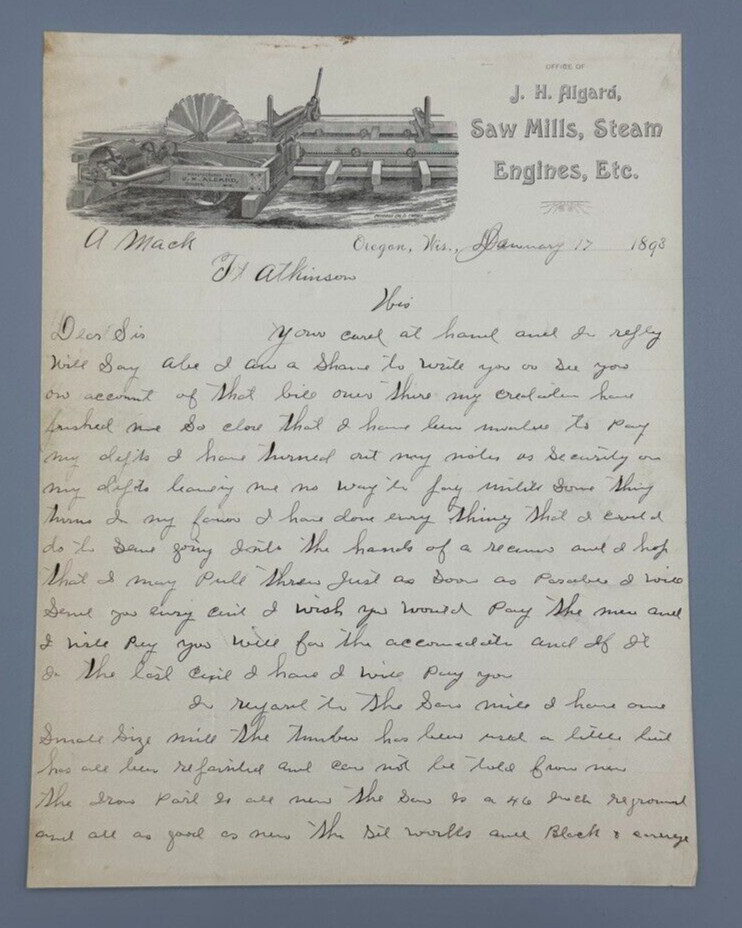 OFFICE OF
J. H. Algard,
Saw Mills, Steam
Engines, Etc.
A Mack
Oregon, Wis., January 17 1893
Ft Atkinson
Wis
Dear Sir Your card at hand and in reply
Will Say Abe I am a Shame to write you or See you
on account of that bill over there my crediters have
pushed me So close that I have been to Pay
my I have turned out my notes as Security on
my leaving me no way to pay untill Some thing
turns In my favor I have done every thing that I could
do to going Into the hands of a and I hop
that I may Pull threw Just as Soon as I will
Send you every cent I wish you would Pay the men and
I will Pay you Well for the and If It
Is the last Cent I have I will Pay you
In regard to the Saw mill I have one
Small Size mill the timber has been used a little but
has all been repainted and can not be told from new
the Iron Part Is all new the Saw Is a 46 Inch reground
and all as good as new the works and Block &